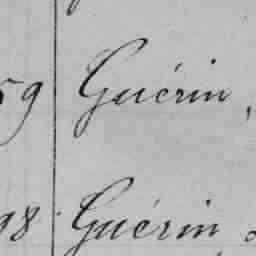 59 Guérin,
98 Guérin